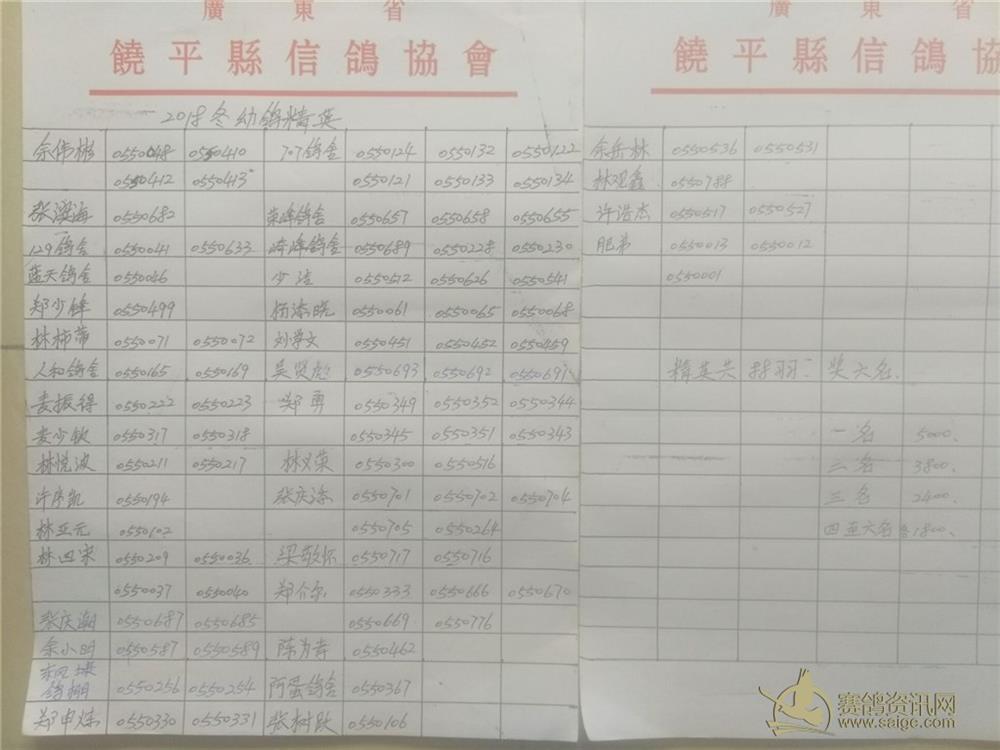 廣東省
饒平縣信鴿協會
2018冬幼鸽精英
余伟彬 0550048 0550410 707鸽舍 0550124 0550132 0550122
0550412 0550413 0550121 0550133 0550134
张滨海 0550682 荣峰鸽舍 0550657 0550658 0550655
129鸽舍 0550041 0550633 鸽舍 0550689 0550228 0550230
蓝天鸽舍 0550046 少洁 0550512 0550626 0550541
郑少锋 0550499 杨 0550061 0550065 0550068
林柿蒂 0550071 0550072 刘学文 0550451 0550452 0550459
人和鸽舍 0550165 0550169 吴贤彪 0550693 0550692 0550697
麦振得 0550222 0550223 郑勇 0550349 0550352 0550344
麦少钦 0550317 0550318 0550345 0550351 0550343
林悦波 0550211 0550217 林义荣 0550300 0550516
许序凯 0550194 张庆添 0550701 0550702 0550704
林亚元 0550102 0550705 0550264
林四宋 0550209 0550036 梁敬怀 0550717 0550716
0550037 0550040 郑介尔 0550333 0550666 0550670
张庆潮 0550687 0550685 0550669 0550776
余小明 0550587 0550589 陈为青 0550462
鸽棚 0550256 0550254 阿蛋鸽舍 0550367
郑申炼 0550330 0550331 张树跃 0550106
廣東省
饒平縣信鴿協
余岳林 0550536 0550531
林观鑫 0550788
许浩杰 0550517 0550527
肥弟 0550013 0550012
0550001
精英共 羽 奖六名.
一名 5000.
二名 3800.
三名 2400.
四至六名各1800.
赛鸽资讯网
www.saige.com